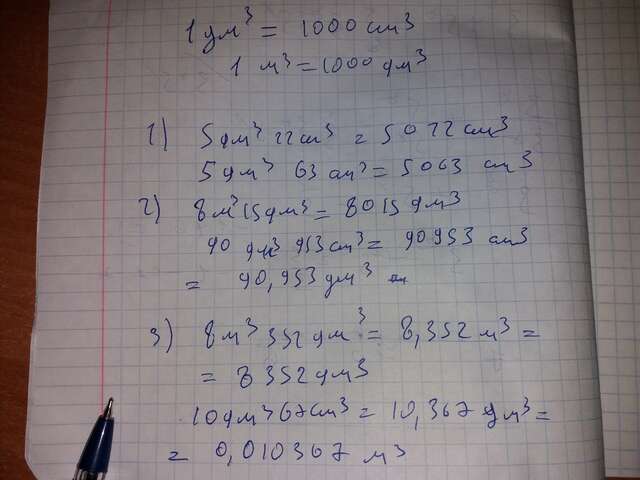 1 дм³ = 1000 см³
1 м³ = 1000 дм³
1) 5 дм³ 22 см³ = 5022 см³
5 дм³ 63 см³ = 5063 см³
2) 8 м³ 15 дм³ = 8015 дм³
90 дм³ 953 см³ = 90953 см³
= 90,953 дм³
3) 8 м³ 352 дм³ = 8,352 м³ =
= 8352 дм³
10 дм³ 367 см³ = 10,367 дм³ =
= 0,010367 м³